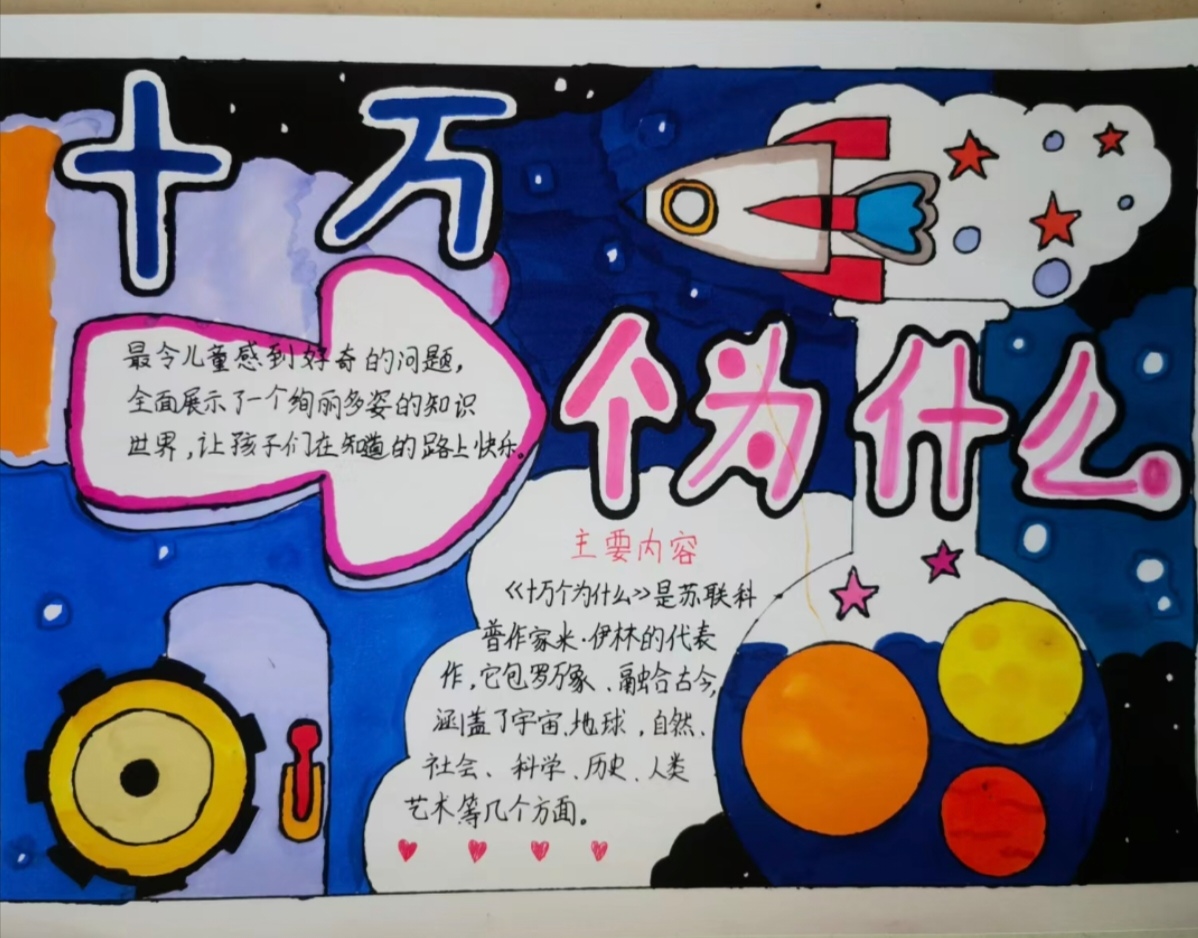 十万
个为什么
最令儿童感到好奇的问题,
全面展示了一个绚丽多姿的知识
世界,让孩子们在知道的路上快乐。
主要内容
《十万个为什么》是苏联科
普作家米·伊林的代表
作,它包罗万象、融合古今,
涵盖了宇宙、地球,自然、
社会、科学、历史、人类
艺术等几个方面。